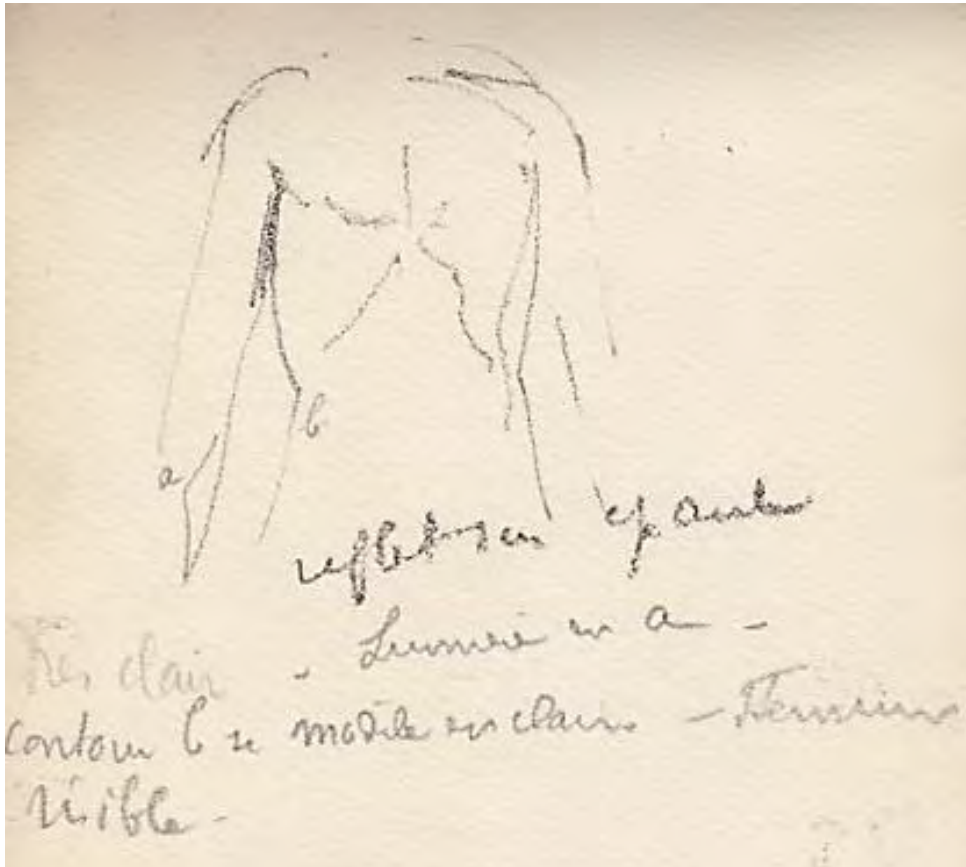 a
b
reflets en
Très clair - Lumière en a -
contour b se modèle en clair -
visible -